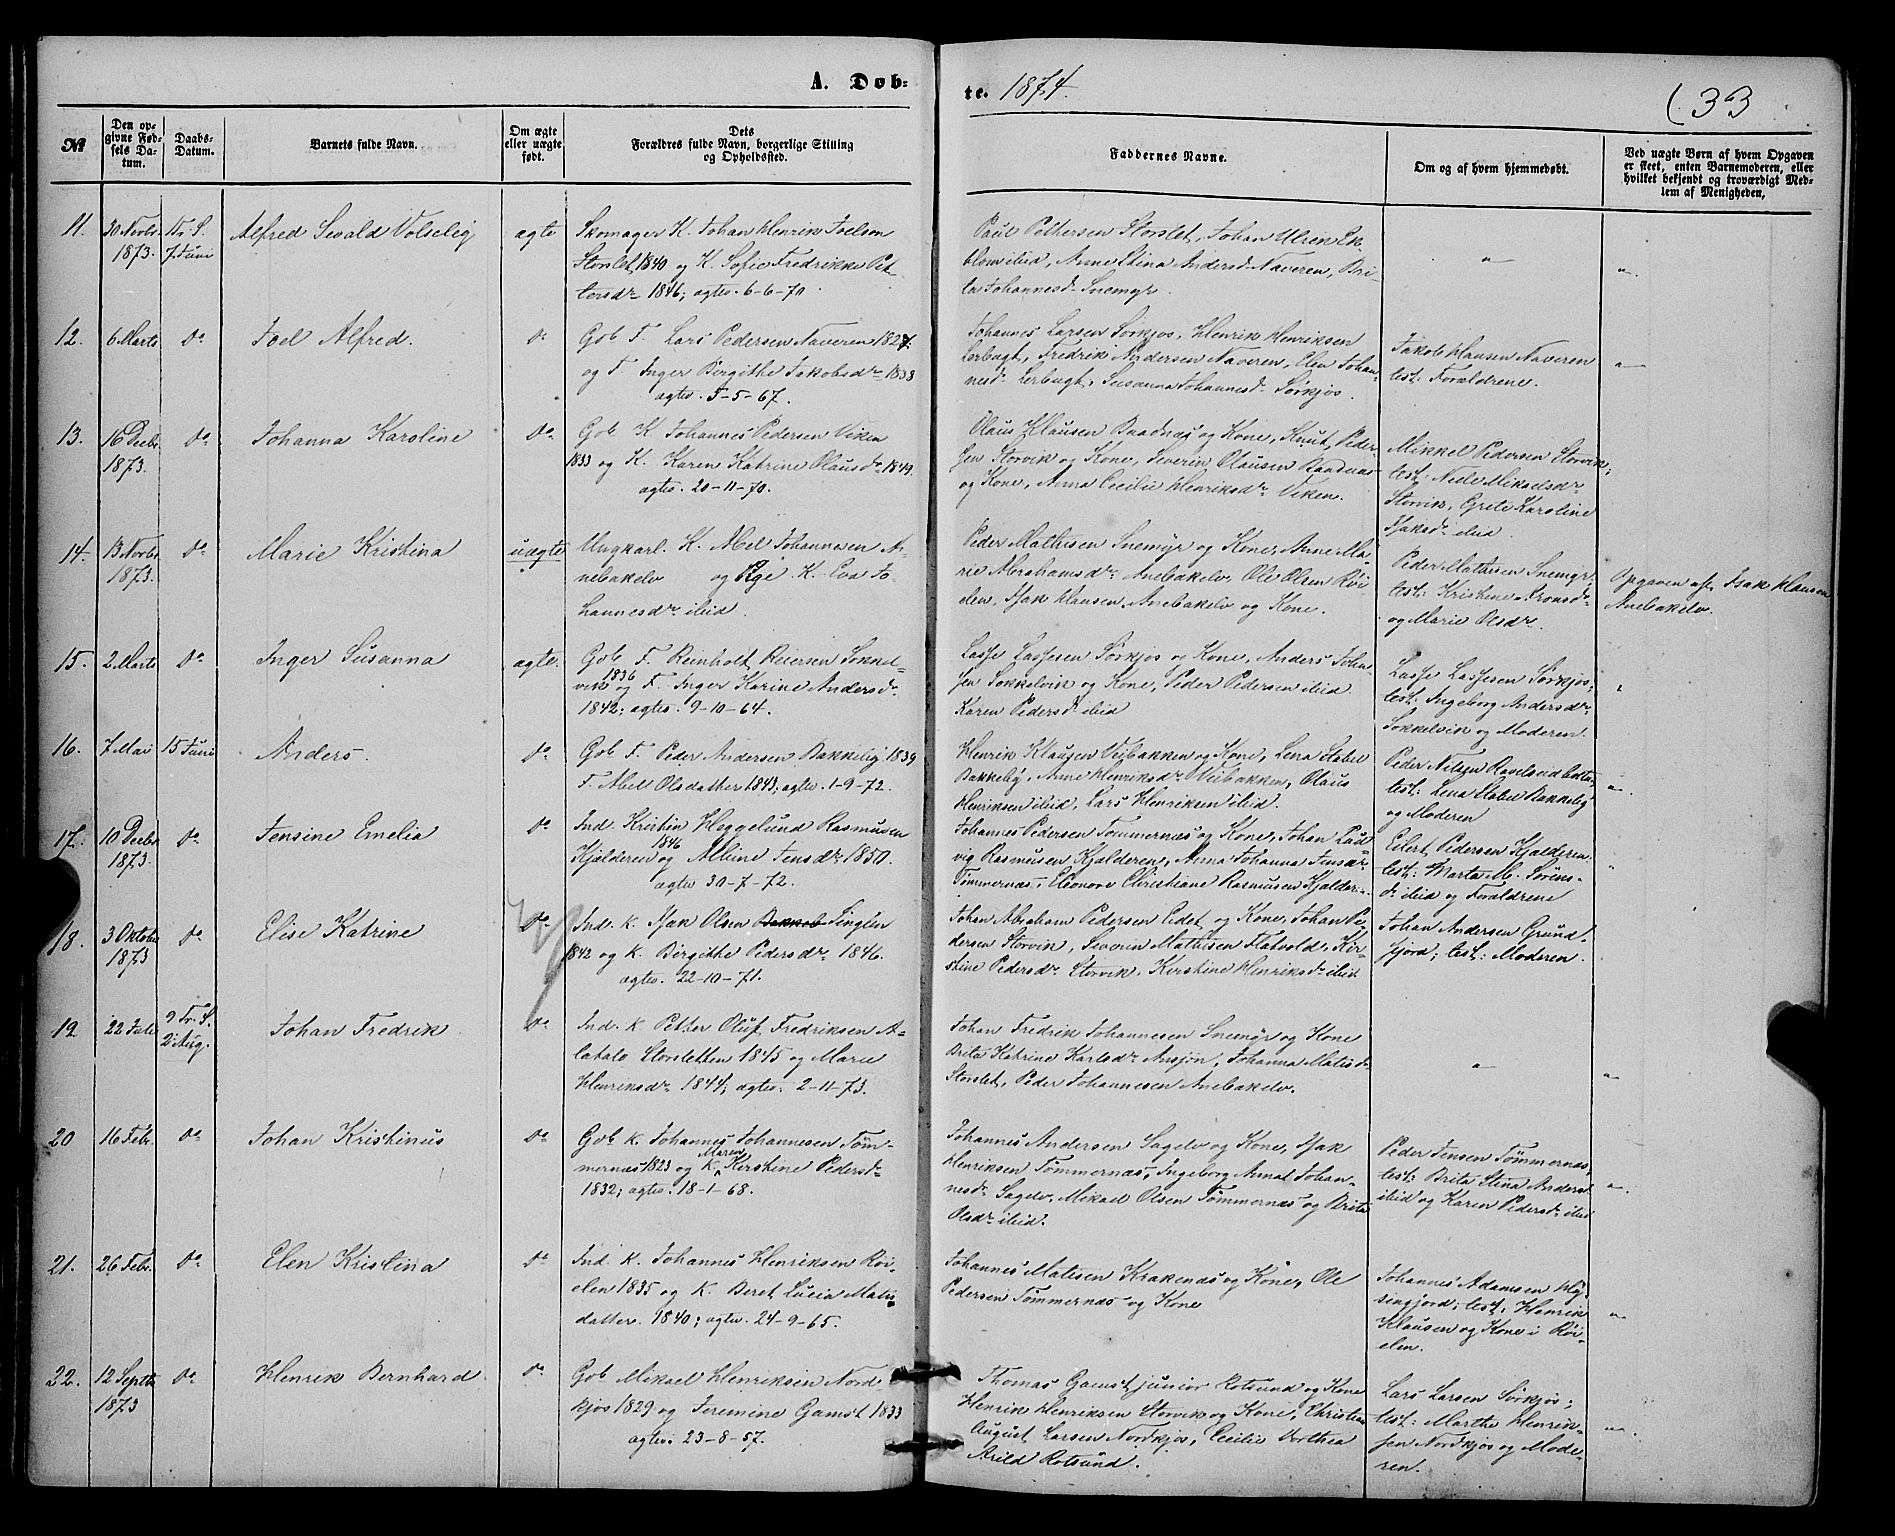 A. Døb=
te. 1874.
33
№
Den op=
givne Fød=
sels Da=
tum.
Daabs=
Datum.
Barnets fulde Navn.
Om ægte
eller uægte
født.
Dets
Forældres fulde Navn, borgerlige Stilling
og Opholdsted.
Faddernes Navne.
Om og af hvem hjemmedøbt.
Ved uægte Børn af hvem Opgaven
er skeet, enten Barnemoderen, eller
hvilket bekjendt og troværdigt Med=
lem af Menigheden,
11. 30 Novbr
1873.
Tr. S.
7 Juni
Alfred Sevald Volselig
ægte
Skomager K. Johan Henrik Joelsen
Storslet 1840 og K. Sofie Fredrikke Pet-
tersdr 1846; agtev. 6-6-70.
Paul Pettersen Storslet, Johan Ulrik Ek-
blom ibid, Anne Stina Andersd. Naveren, Bri-
ta Johannesd. Snemyr.
"
"
12. 6 Marts
do
Joel Alfred.
do
Gob F. Lars Pedersen Naveren 1827.
og F. Inger Birgithe Jakobsdr 1838
agtev. 5-5-67.
Johannes Larsen Sørkjos, Henrik Henriksen
Lerbugt, Fredrik Andersen Naveren, Elen Johan-
nesd. Lerbugt, Susanna Johannesd. Sørkjos.
Jakob Hansen Naveren
test: Forældrene.
"
13. 16 Decbr
1873.
do
Johanna Karoline
do
Gob. K. Johannes Pedersen Viken
1833 og K. Karen Katrine Olausdr 1849.
agtev. 20-11-70.
Olaus Hansen Baadnæs og Kone, Knut Peder-
sen Storvik og Kone, Severin Olausen Baadnæs
og Kone, Anna Cecilie Henriksdr Viken.
Mikkel Pedersen Storvik;
test: Nele Mikelsdr
Storvik, Grete Karoline
Isaksdr ibid.
14. 13 Novbr
1873.
do
Marie Kristina
uægte
Ungkarl. K. Abel Johannesen An-
nebakelv og Pige K. Eva Jo-
hannesdr ibid.
Peder Mathisen Snemyr og Kone, Anne Ma-
rie Abrahamsdr Anebakelv, Ole Olsen Røi-
elen, Isak Hansen Anebakelv og Kone.
Peder Mathisen Snemyr
test: Kristine Aronsdr
og Marie Olsdr.
Opgaven af Isak Hansen
Anebakelv.
15. 2 Marts
do
Inger Susanna
ægte.
Gob F. Reinholt Reiersen Sokkel-
vik 1836 og F. Inger Karine Andersdr
1842; agtev. 9-10-64.
Lasse Lassesen Sørkjos og Kone, Anders Johan-
sen Sokkelvik og Kone, Peder Pedersen ibid
Karen Pedersd. ibid
Lasse Lassesen Sørkjos;
test: Ingeborg Andersdr
Sokkelvik og Moderen.
"
16. 7 Mai
15 Juni
Anders.
do
Gob F. Peder Andersen Bakkeby 1839
F. Abel Olsdatter 1843, agtev. 1-9-72.
Henrik Klausen Veibakken og Kone, Lena Isabel
Bakkeby, Anne Henriksdr Veibakken, Olaus
Henriksen ibid, Lars Henriksen ibid.
Peder Nilsen
test: Lena Isabel Bakkeby
og Moderen
"
17. 10 Decbr
1873.
do
Jensine Emelia
do
Ind. Kristen Heggelund Rasmusen
Hjalderen 1846 og Albine Jensdr 1850.
agtev. 30-7-72.
Johannes Pedersen Tømmernæs og Kone, Johan Lud-
vig Rasmusen Hjalderen, Anna Johanna Jensdr
Tømmernæs, Eleonore Christiane Rasmusen Hjalder-.
Eilert Pedersen Hjalderen
test: Marta M. Sørens-
dr ibid og Forældrene
"
18. 3 Oktober
1873
do
Elise Katrine
do
Ind. K. Isak Olsen Bakkeb Singlen
1842 og K. Birgithe Pedersdr 1846.
agtev. 22-10-71.
Johan Abraham Pedersen Eidet og Kone, Johan Pe-
dersen Storvik, Severin Mathisen Flatvold, Kir-
stine Pedersdr Storvik, Kirstine Henriksdr ibid
Johan Andersen Grund-
fjord; test: Moderen.
19 22 Juli
9 Tr. S.
2 Aug.
Johan Fredrik
do
Ind. K Petter Oluf Fredriksen A-
latalo Storsletten 1845 og Marie
Henriksdr 1844; agtev. 2-11-73.
Johan Fredrik Johannesen Snemyr og Kone
Brita Katrine Karlsdr Ansjøn, Johanna Matisd.
Storslet, Peder Johannesen Anebakelv.
"
"
20 16 Febr.
do
Johan Kristinus
do
Gob K. Johannes Johannesen Tøm-
mernæs 1823 og K. Maren Kirstine Pedersdr
1832; agtev. 18-1-68.
Johannes Andersen Sagelv og Kone, Isak
Henriksen Tømmernæs, Ingeborg Anna Johan-
nesdr Sagelv, Mikael Olsen Tømmernæs og Brita
Olsdr ibid.
Peder Jensen Tømmernæs,
test: Brita Stina Andersd.
ibid og Karen Pedersdr ibid
"
21. 26 Febr.
do
Elen Kristina
do
Ind. K. Johannes Henriksen Røi-
elen 1835 og K. Beret Lucia Matis-
datter 1840; agtev. 24-9-65.
Johannes Matisen Krakenæs og Kone, Ole
Pedersen Tømmernæs og Kone
Johannes Adamsen My-
singjord; test: Henrik
Klausen og Kone i Røi-
elen.
"
22. 12 Septbr
1873
do
Henrik Bernhard
do
Gob Mikael Henriksen Nord-
kjos 1829 og Jeremine Gamst 1833
agtev: 23-8-57.
Thomas Gamst junior Rotsund og Kone
Henrik Henriksen Storvik og Kone, Christian
August Larsen Nordkjos, Cecilie Dorthea
Arild Rotsund.
Lars Larsen Sørkjos;
test: Marthe Henrik-
sen Nordkjos og Mode-
ren.
"